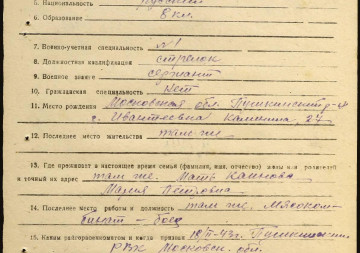 5. Национальность русский
6. Образование 8 кл.
7. Военно-учетная специальность №1
8. Должностная квалификация стрелок
9. Военное звание сержант
10. Гражданская специальность нет
11. Место рождения Московская обл. Пушкинский р-н
с. Ивантеевка Калинина, 27
12. Последнее место жительства там же
13. Где проживает в настоящее время семья (фамилия, имя, отчество) жены или родителей
и точный их адрес там же. Мать
Мария Петровна
14. Последнее место работы и должность там же. Мясоком-
бинат — боец
15. Каким райгорвоенкоматом и когда призван 43г. Пушкинским
РВК Московск. обл.